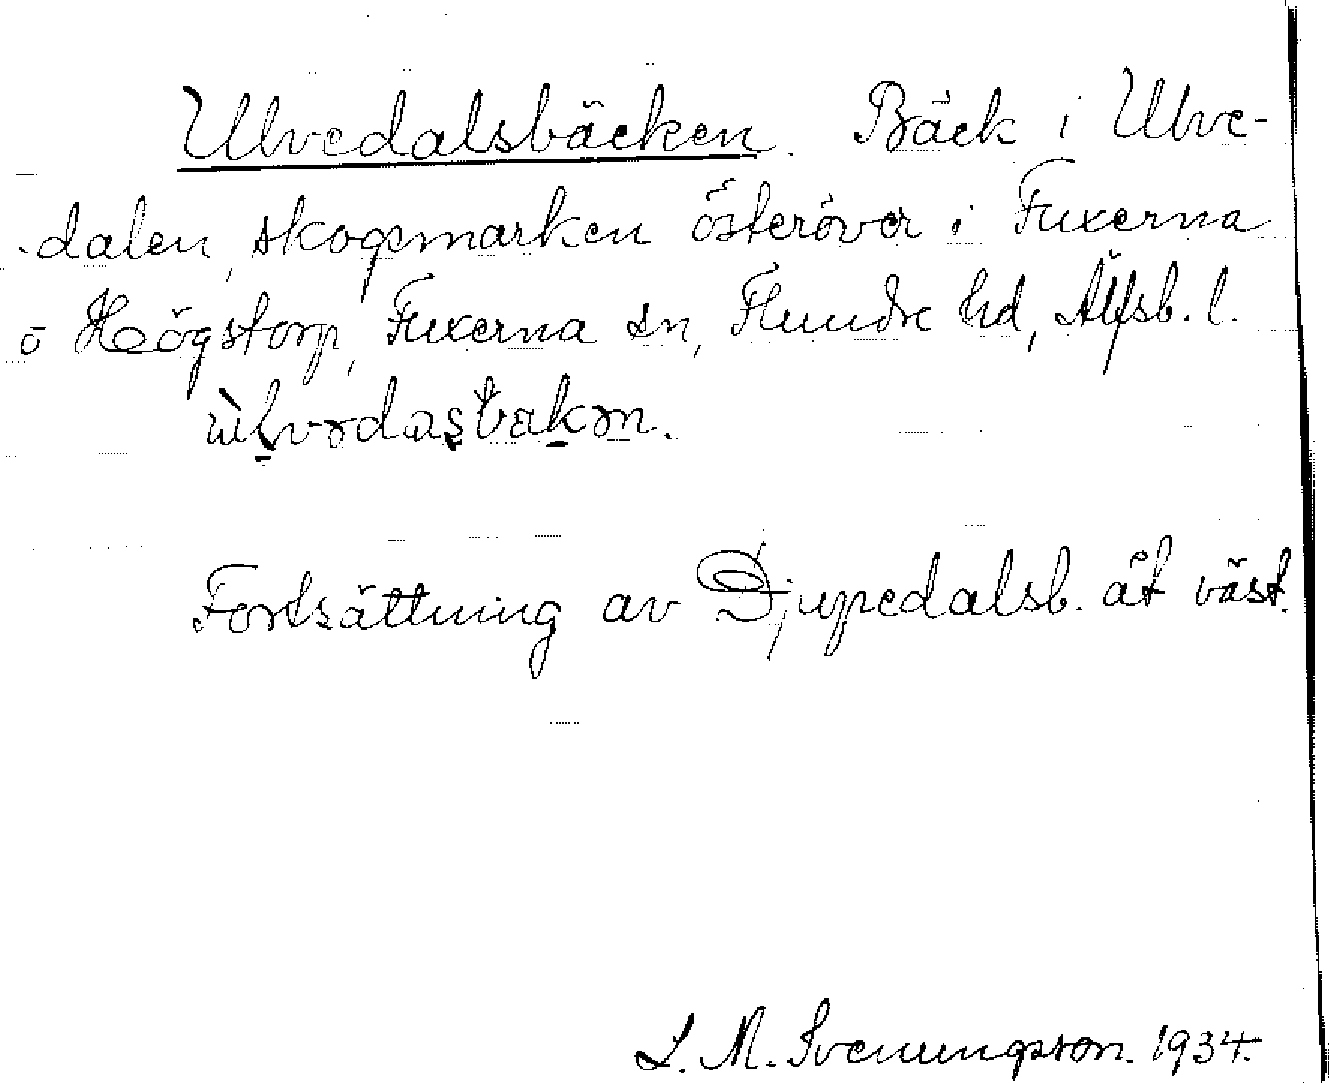 Ulvedalsbäcken. Bäck i Ulve-
dalen, skogsmarken österöver i Fuxerna
o Högstorp, Fuxerna sn, Flundre hd, Älfsb. l.
Fortsättning av Djupedalsb. åt väst.
L. M. Svenungsson. 1934.